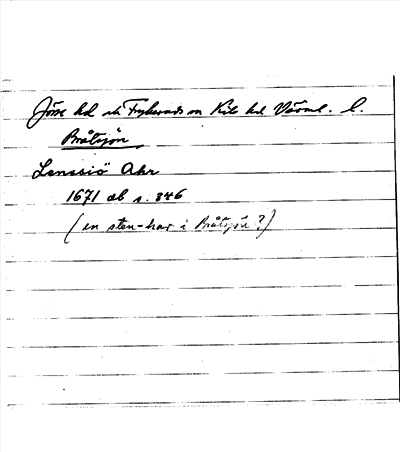 Jösse hd och Fryksands sn Kils hd Värml. l.
Bråtsjön
Lenssiö Ahr
1671 ab s. 346
(en sten-har i Bråtsjön?)